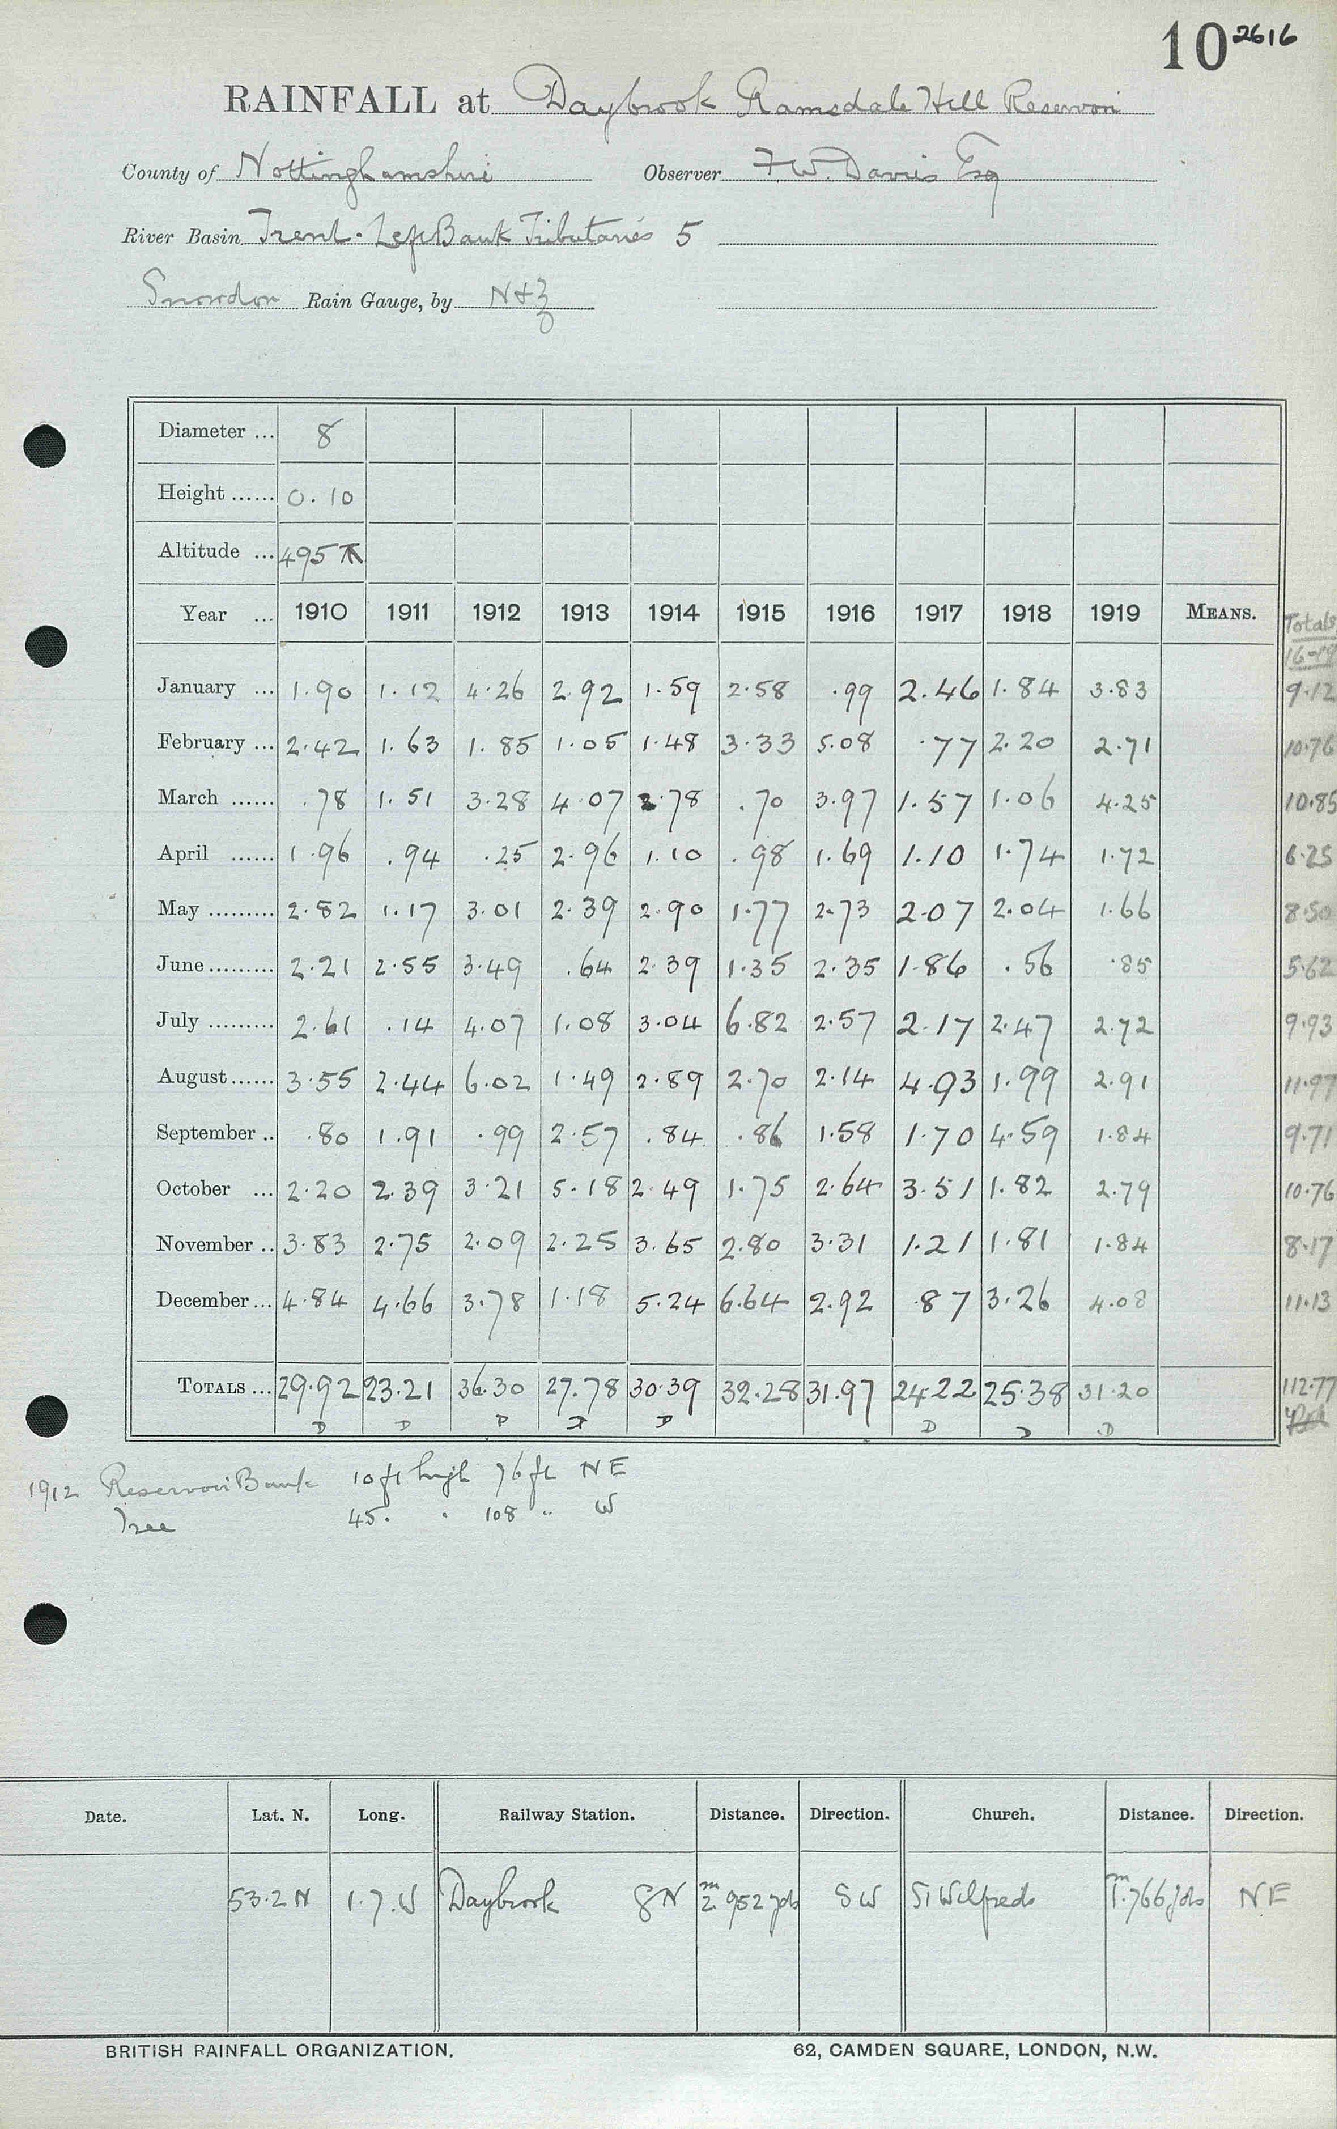 10 2616
RAINFALL at Daybrook Ramsdale Hill Reservoir
County of Nottinghamshire Observer F.W. Davis Esq
River Basin Trent. Left Bank Tributaries 5
Snowdon Rain Gauge, by N+Z
Diameter ... 8
Height ...... 0.10
Altitude ... 495
Year ... 1910 1911 1912 1913 1914 1915 1916 1917 1918 1919 MEANS. Totals
16-19
January ... 1.90 1.12 4.26 2.92 1.59 2.58 .99 2.46 1.84 3.83 9.12
February ... 2.42 1.63 1.85 1.05 1.48 3.33 5.08 .77 2.20 2.71 10.76
March ...... .78 1.51 3.28 4.07 2.78 .70 3.97 1.57 1.06 4.25 10.85
April ...... 1.96 .94 .25 2.96 1.10 .98 1.69 1.10 1.74 1.72 6.25
May ......... 2.82 1.17 3.01 2.39 2.90 1.77 2.73 2.07 2.04 1.66 8.50
June ......... 2.21 2.55 3.49 .64 2.39 1.35 2.35 1.86 .56 .85 5.62
July ......... 2.61 .14 4.07 1.08 3.04 6.82 2.57 2.17 2.47 2.72 9.93
August ...... 3.55 2.44 6.02 1.49 2.89 2.70 2.14 4.93 1.99 2.91 11.97
September .. .80 1.91 .99 2.57 .84 .86 1.58 1.70 4.59 1.84 9.71
October ... 2.20 2.39 3.21 5.18 2.49 1.75 2.64 3.51 1.82 2.79 10.76
November .. 3.83 2.75 2.09 2.25 3.65 2.80 3.31 1.21 1.81 1.84 8.17
December ... 4.84 4.66 3.78 1.18 5.24 6.64 2.92 .87 3.26 4.08 11.13
TOTALS ... 29.92 23.21 36.30 27.78 30.39 32.28 31.97 24.22 25.38 31.20 112.77
D D D D D D D D
1912 Reservoir Bank 10 ft high 76 ft NE
Tree 45 . . 108 .. W
Date. Lat. N. Long. Railway Station. Distance. Direction. Church. Distance. Direction.
53.2 N 1.7.W Daybrook GN 2 m 952 yds SW St Wilfreds 1 m .766 yds NE
BRITISH RAINFALL ORGANIZATION. 62, CAMDEN SQUARE, LONDON, N.W.